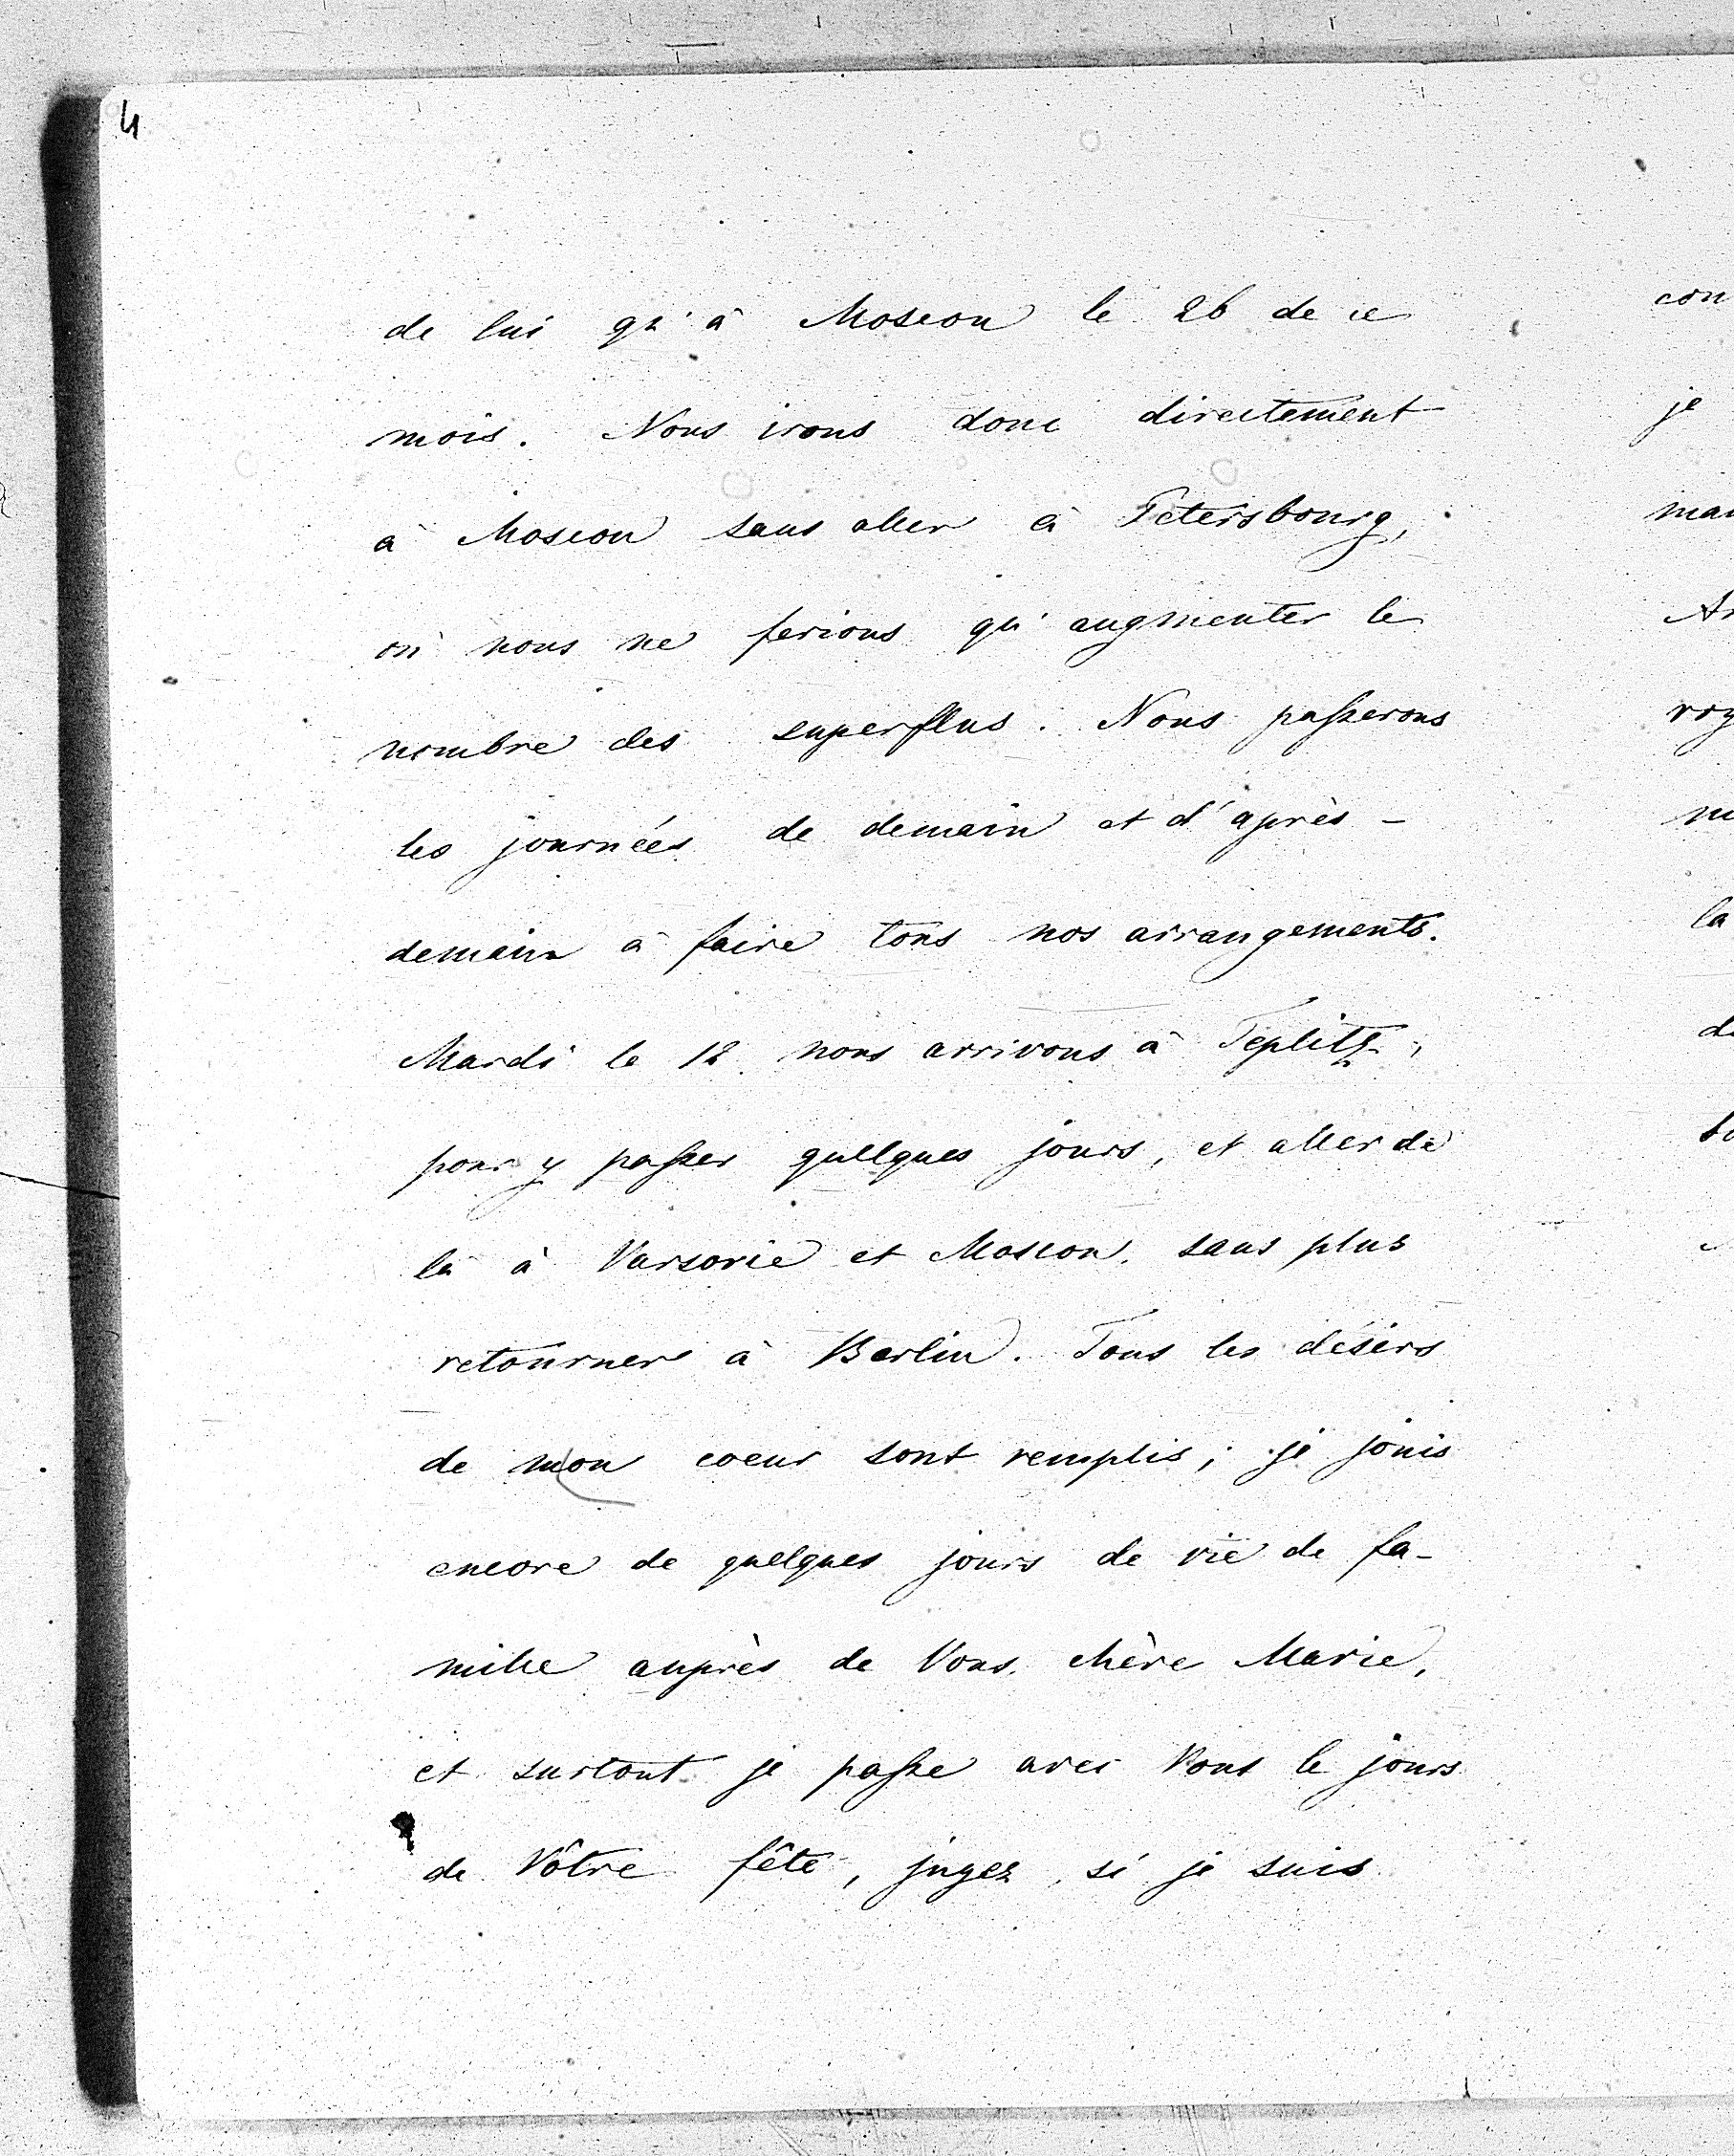 4
de lui qu'à Moscou le 26 de ce
mois. Nous irons donc directement
à Moscou sans aller à Petersbourg,
où nous ne ferions qu'augmenter le
nombre des superflus. Nous passerons
les journées de demain et d'après-
demain à faire tous nos arrangements.
Mardi le 12 nous arrivons à Teplitz,
pour y passer quelques jours, et aller de
là à Varsovie et Moscou, sans plus
retourner à Berlin. Tous les désirs
de mon coeur sont remplis; je jouis
encore de quelques jours de vie de fa-
mille auprès de Vous, chère Marie,
et surtout je passe avec Vous le jours
de Vôtre fête, jugez, si je suis
con
je
mai
voy
la